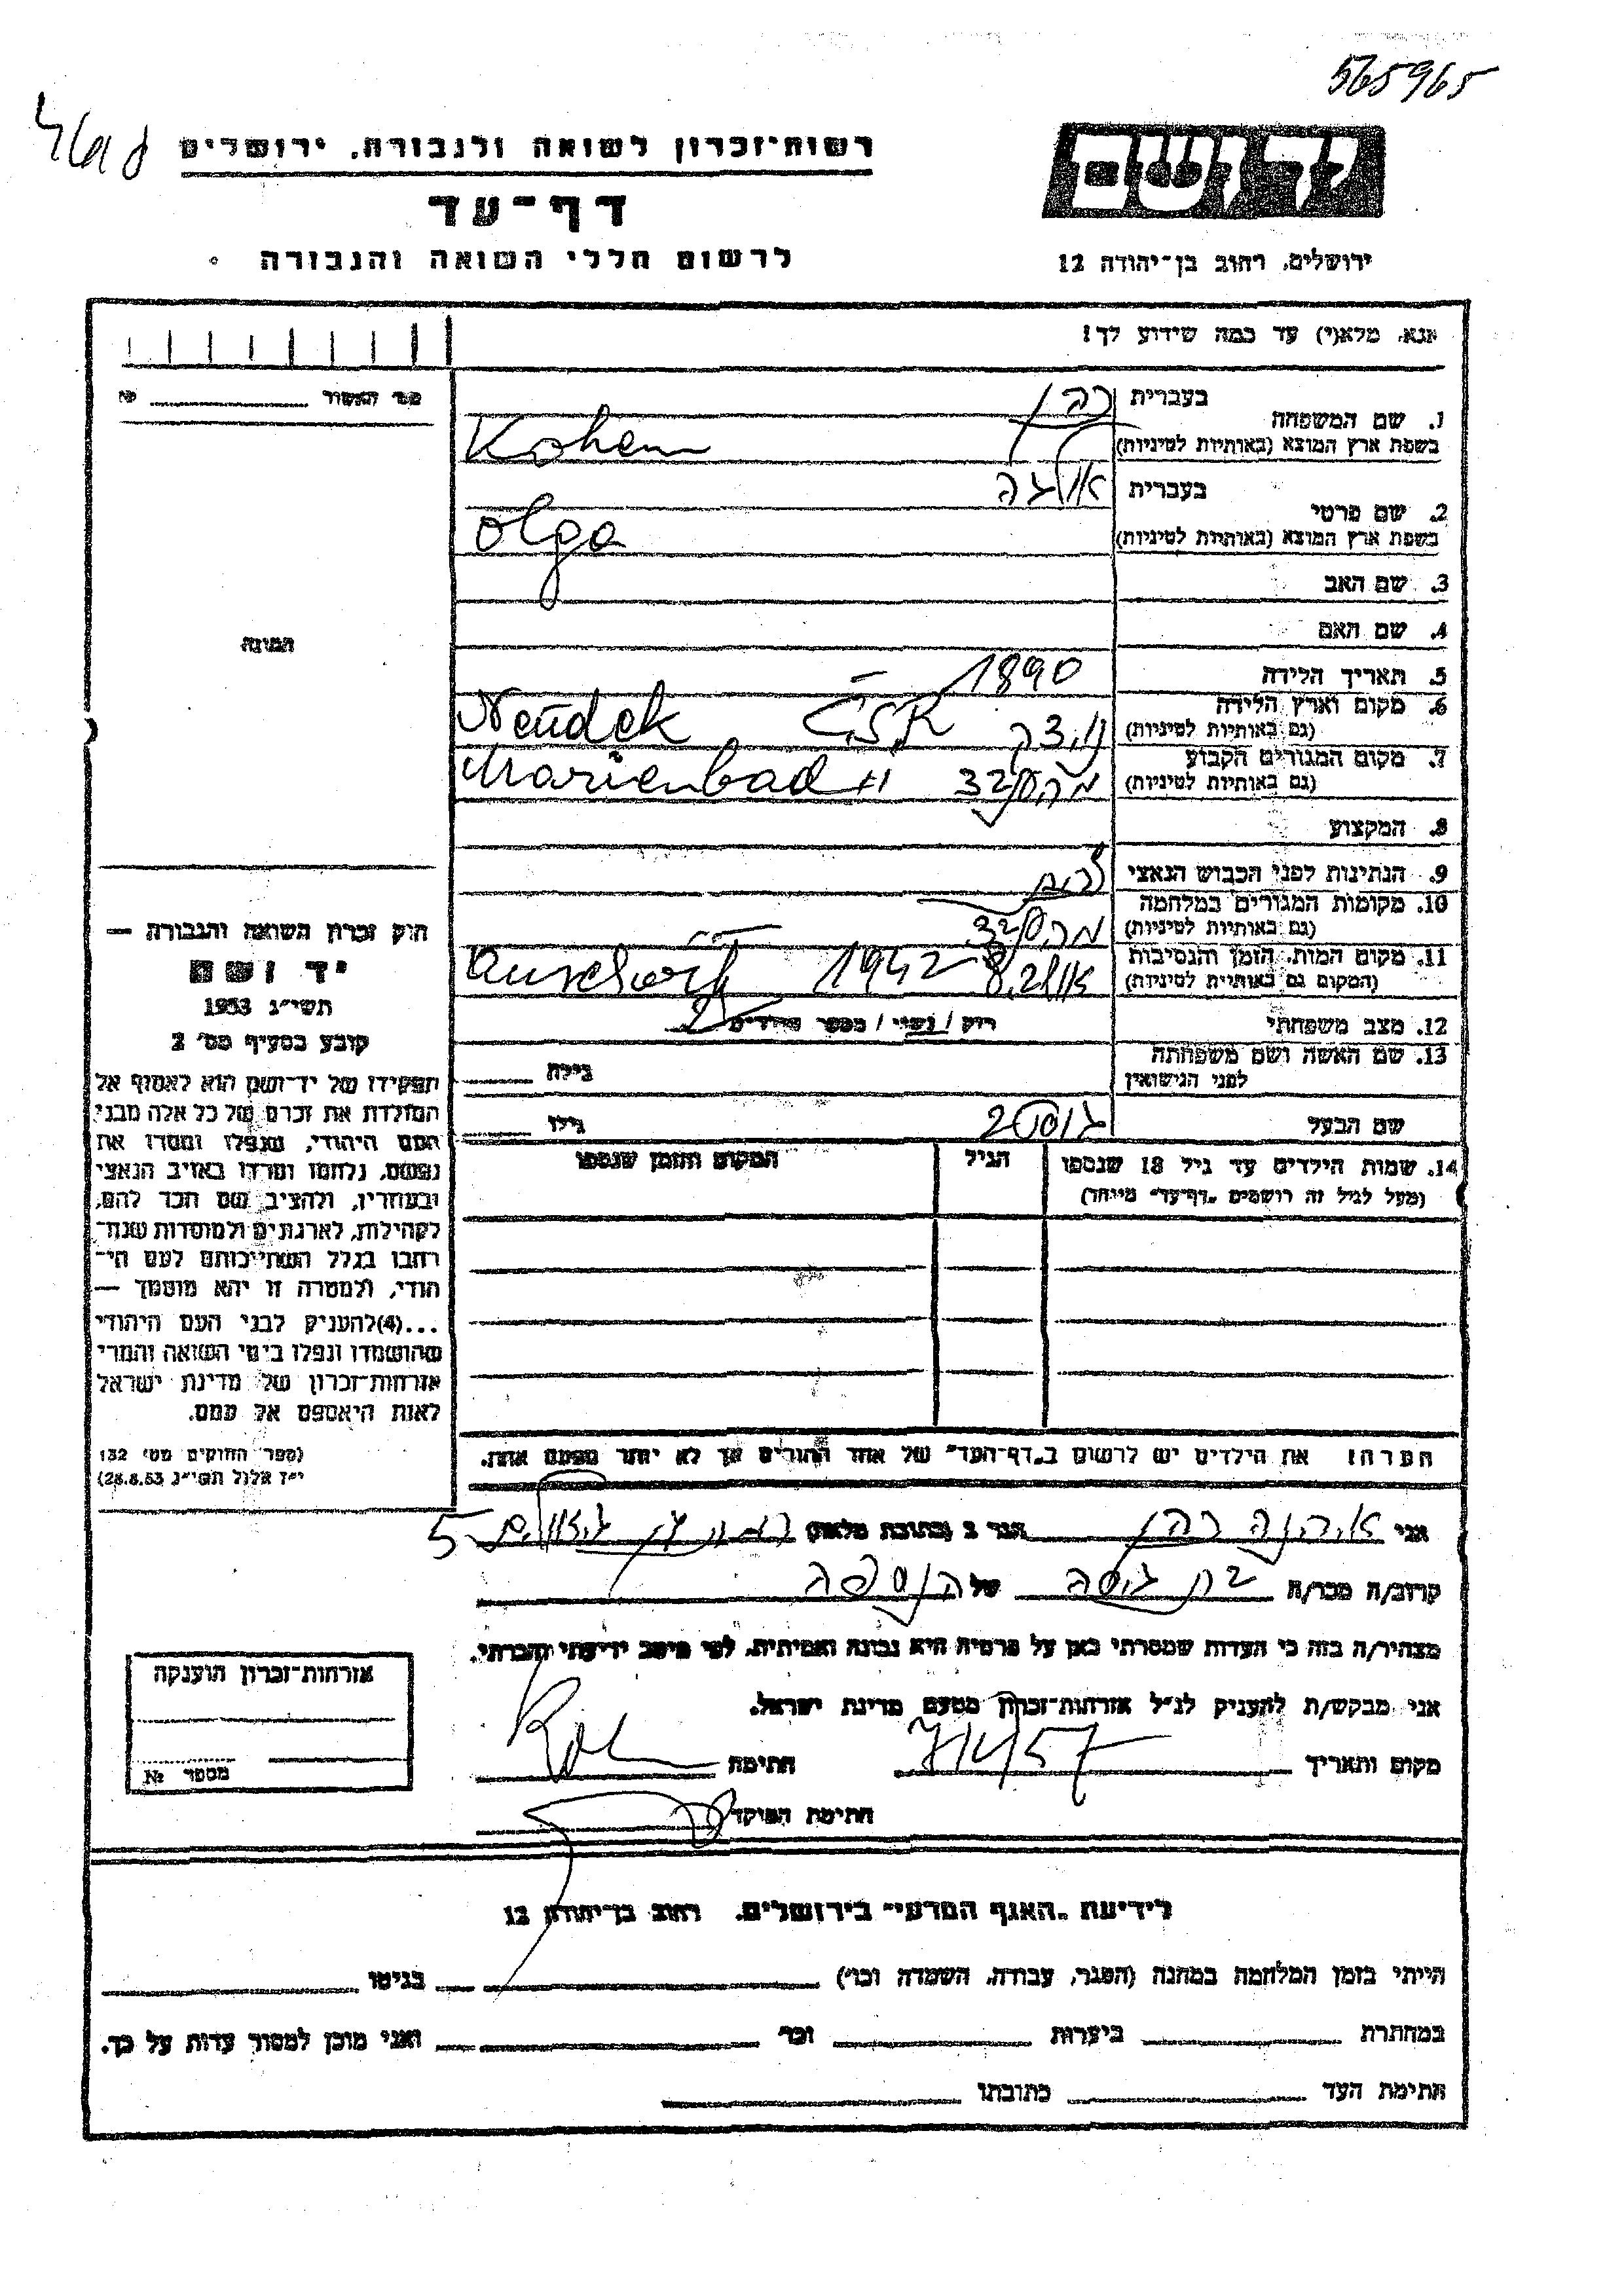 565965
רשות־זכרון לשואה ולגבורה, ירושלים
יד ושם
דף־עד
לרשום חללי השואה והגבורה
ירושלים, רחוב בן־יהודה 12
אנא, מלא(י) עד כמה שידוע לך!
מס׳ האשור №
1. שם המשפחה
בעברית כהן
בשפת ארץ המוצא (באותיות לטיניות) Kohen
2. שם פרטי
בעברית אולגה
בשפת ארץ המוצא (באותיות לטיניות) Olga
3. שם האב
4. שם האם
התמונה
5. תאריך הלידה 1890
6. מקום וארץ הלידה
(גם באותיות לטיניות) Neudek Č.S.R
7. מקום המגורים הקבוע
(גם באותיות לטיניות) Marienbad
8. המקצוע
9. הנתינות לפני הכבוש הנאצי
10. מקומות המגורים במלחמה
(גם באותיות לטיניות)
11. מקום המות, הזמן והנסיבות
(המקום גם באותיות לטיניות) 1942
12. מצב משפחתי רוק / נשוי / מספר הילדים 2
13. שם האשה ושם משפחתה
לפני הנישואין גילה
שם הבעל גוסטב גילו
14. שמות הילדים עד גיל 18 שנספו הגיל המקום והזמן שנספו
(מעל לגיל זה רושמים „דף־עד״ מיוחד)
חוק זכרון השואה והגבורה —
יד ושם
תשי״ג 1953
קובע בסעיף מס׳ 2
תפקידו של יד־ושם הוא לאסוף אל
המולדת את זכרם של כל אלה מבני
העם היהודי, שנפלו ומסרו את
נפשם, נלחמו ומרדו באויב הנאצי
ובעוזריו, ולהציב שם וזכר להם,
לקהילות, לארגונים ולמוסדות שנח־
רבו בגלל השתייכותם לעם הי־
הודי, ולמטרה זו יהא מוסמך —
...(4)להעניק לבני העם היהודי
שהושמדו ונפלו בימי השואה והמרי
אזרחות־זכרון של מדינת ישראל
לאות היאספם אל עמם.
(ספר החוקים מס׳ 132
י״ז אלול תשי״ג 28.8.53)
הערה: את הילדים יש לרשום ב„דף־העד״ של אחד ההורים אך לא יותר מפעם אחת.
אני כהן הגר ב (כתובת מלאה) 5
קרוב/ה מכר/ה בת גיסה של הנספה
מצהיר/ה בזה כי העדות שמסרתי כאן על פרטיה היא נכונה ואמיתית, לפי מיטב ידיעתי והכרתי.
אני מבקש/ת להעניק לנ״ל אזרחות־זכרון מטעם מדינת ישראל.
מקום ותאריך 7/4/57 חתימה
חתימת הפוקד
אזרחות־זכרון הוענקה
מספר №
לידיעת „האגף המדעי״ בירושלים, רחוב בן־יהודה 12
הייתי בזמן המלחמה במחנה (הסגר, עבודה, השמדה וכו׳) בגיטו
במחתרת ביערות וכו׳ ואני מוכן למסור עדות על כך.
חתימת העד כתובתו